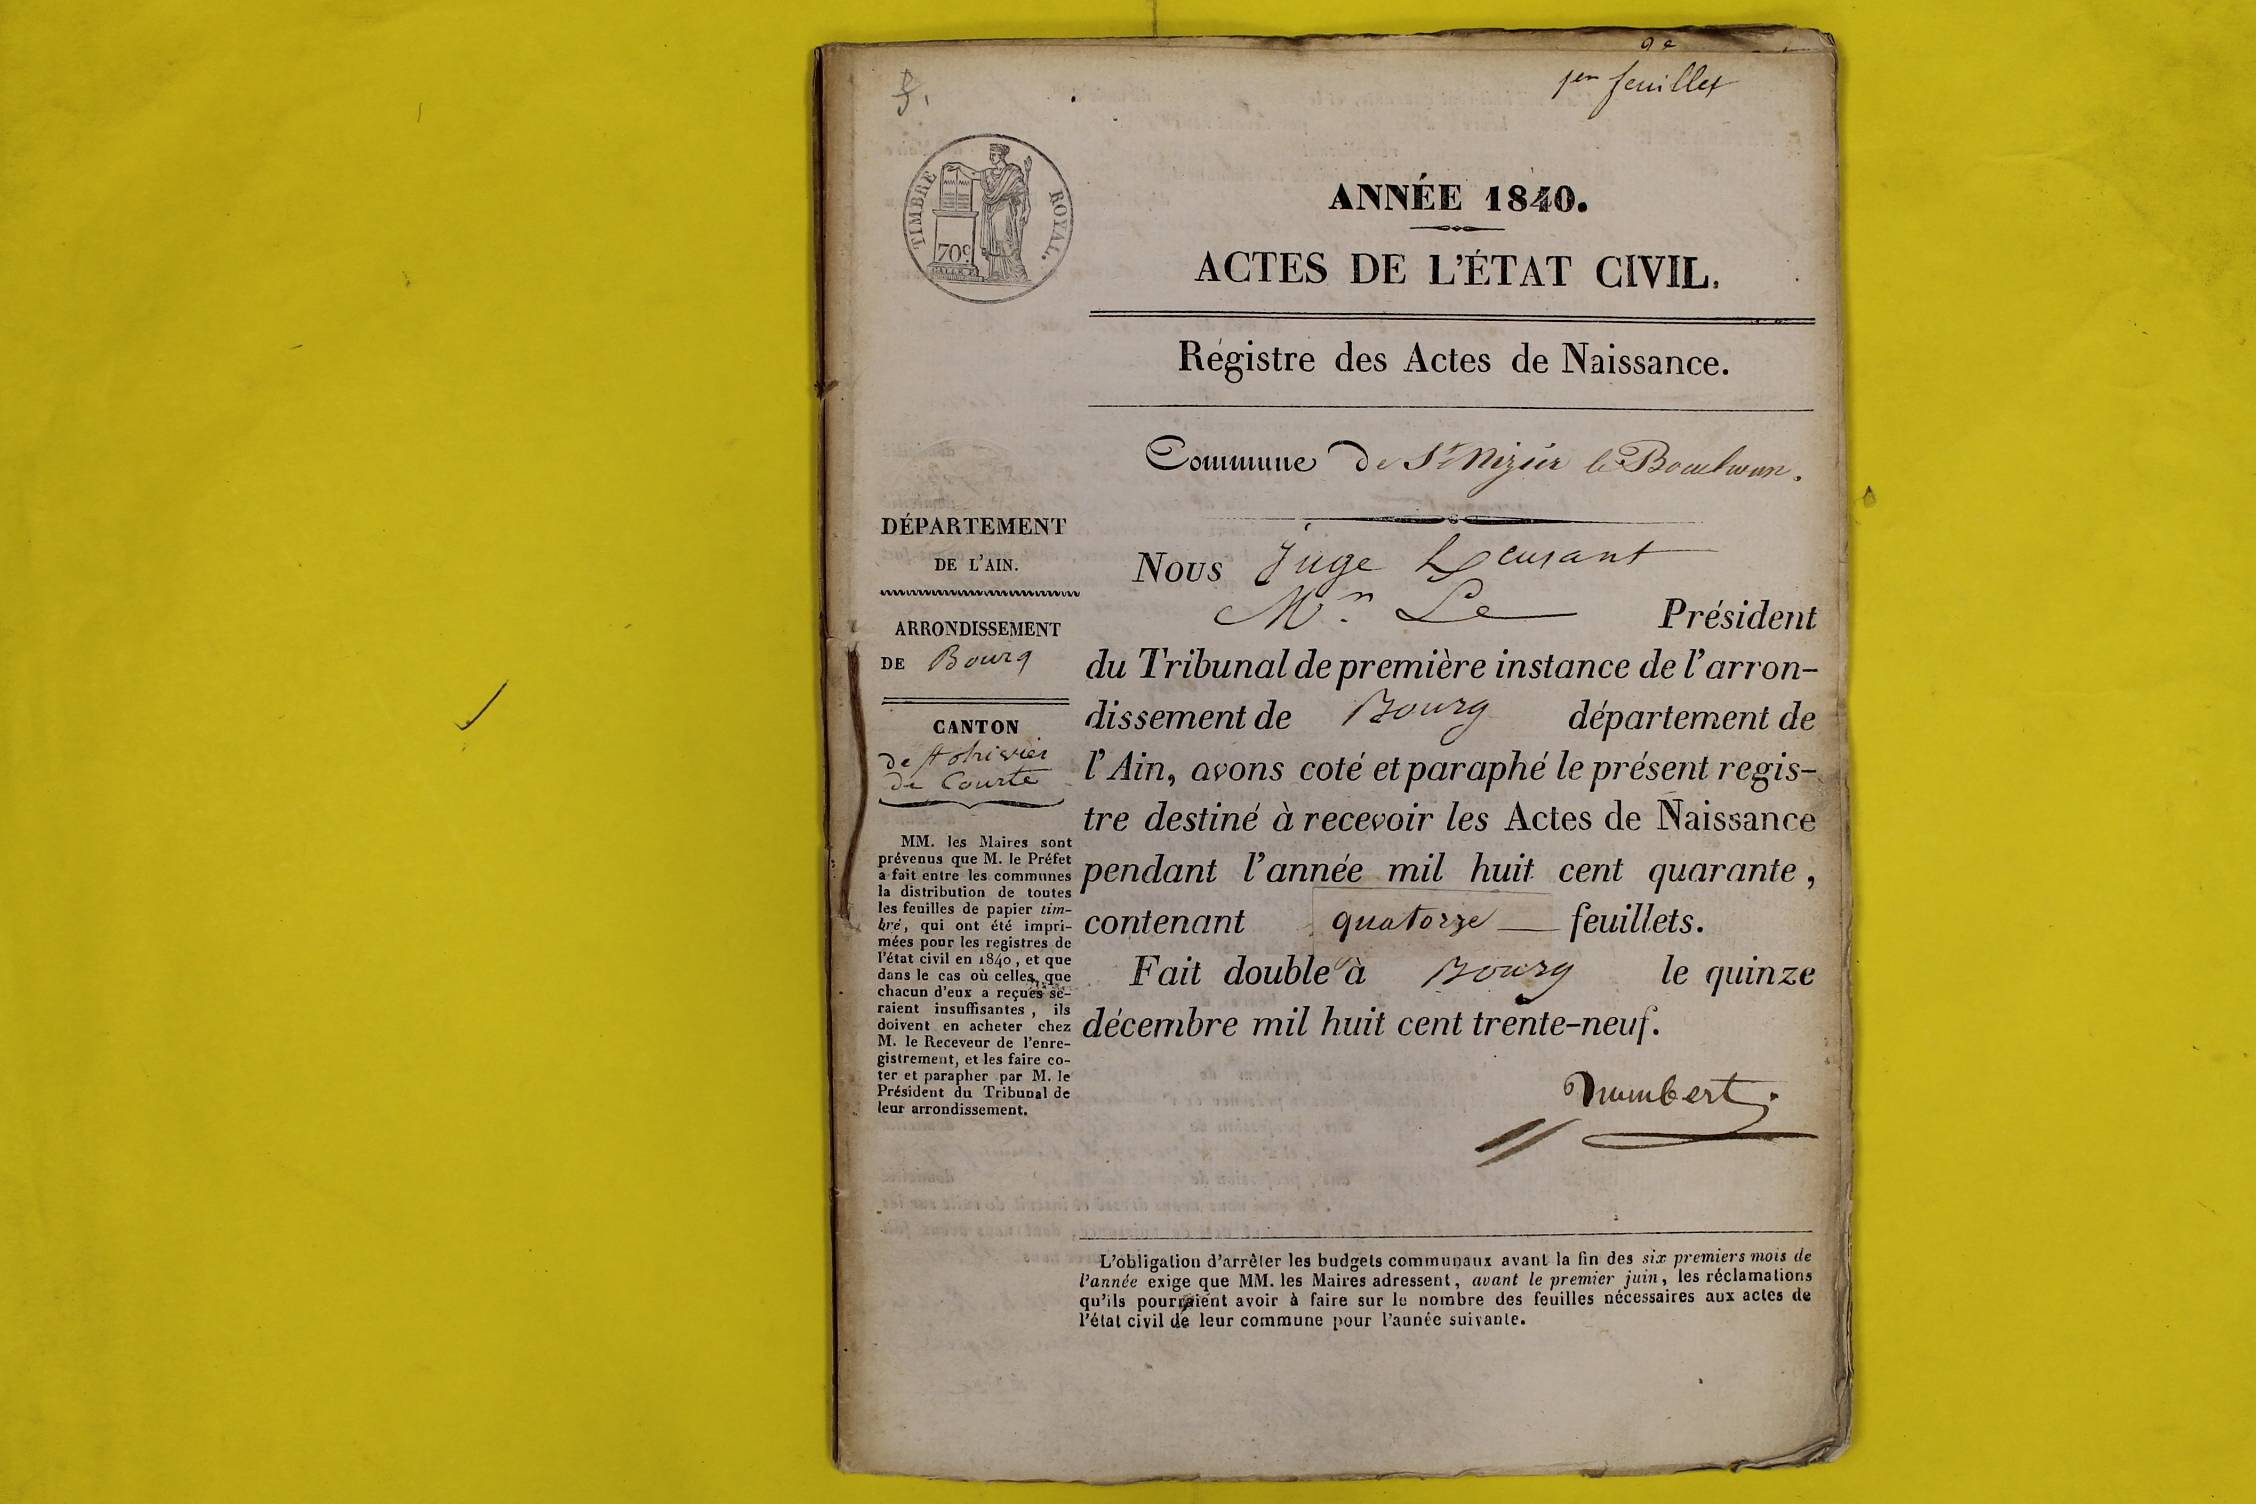 1er feuillet
TIMBRE ROYAL.
70c.
ANNÉE 1840.
ACTES DE L'ÉTAT CIVIL.
Régistre des Actes de Naissance.
Commune de St Nizier le Bouchoux.
DÉPARTEMENT
DE L'AIN.
ARRONDISSEMENT
DE Bourg
CANTON
de St trivier
de Courte
MM. les Maires sont
prévenus que M. le Préfet
a fait entre les communes
la distribution de toutes
les feuilles de papier tim-
bré, qui ont été impri-
mées pour les registres de
l'état civil en 1840, et que
dans le cas où celles que
chacun d'eux a reçues se-
raient insuffisantes, ils
doivent en acheter chez
M. le Receveur de l'enre-
gistrement, et les faire co-
ter et parapher par M. le
Président du Tribunal de
leur arrondissement.
Nous Juge
Mr. Le Président
du Tribunal de première instance de l'arron-
dissement de Bourg département de
l'Ain, avons coté et paraphé le présent regis-
tre destiné à recevoir les Actes de Naissance
pendant l'année mil huit cent quarante,
contenant quatorze feuillets.
Fait double à Bourg le quinze
décembre mil huit cent trente-neuf.
humbert
L'obligation d'arrêter les budgets communaux avant la fin des six premiers mois de
l'année exige que MM. les Maires adressent, avant le premier juin, les réclamations
qu'ils pourraient avoir à faire sur le nombre des feuilles nécessaires aux actes de
l'état civil de leur commune pour l'année suivante.